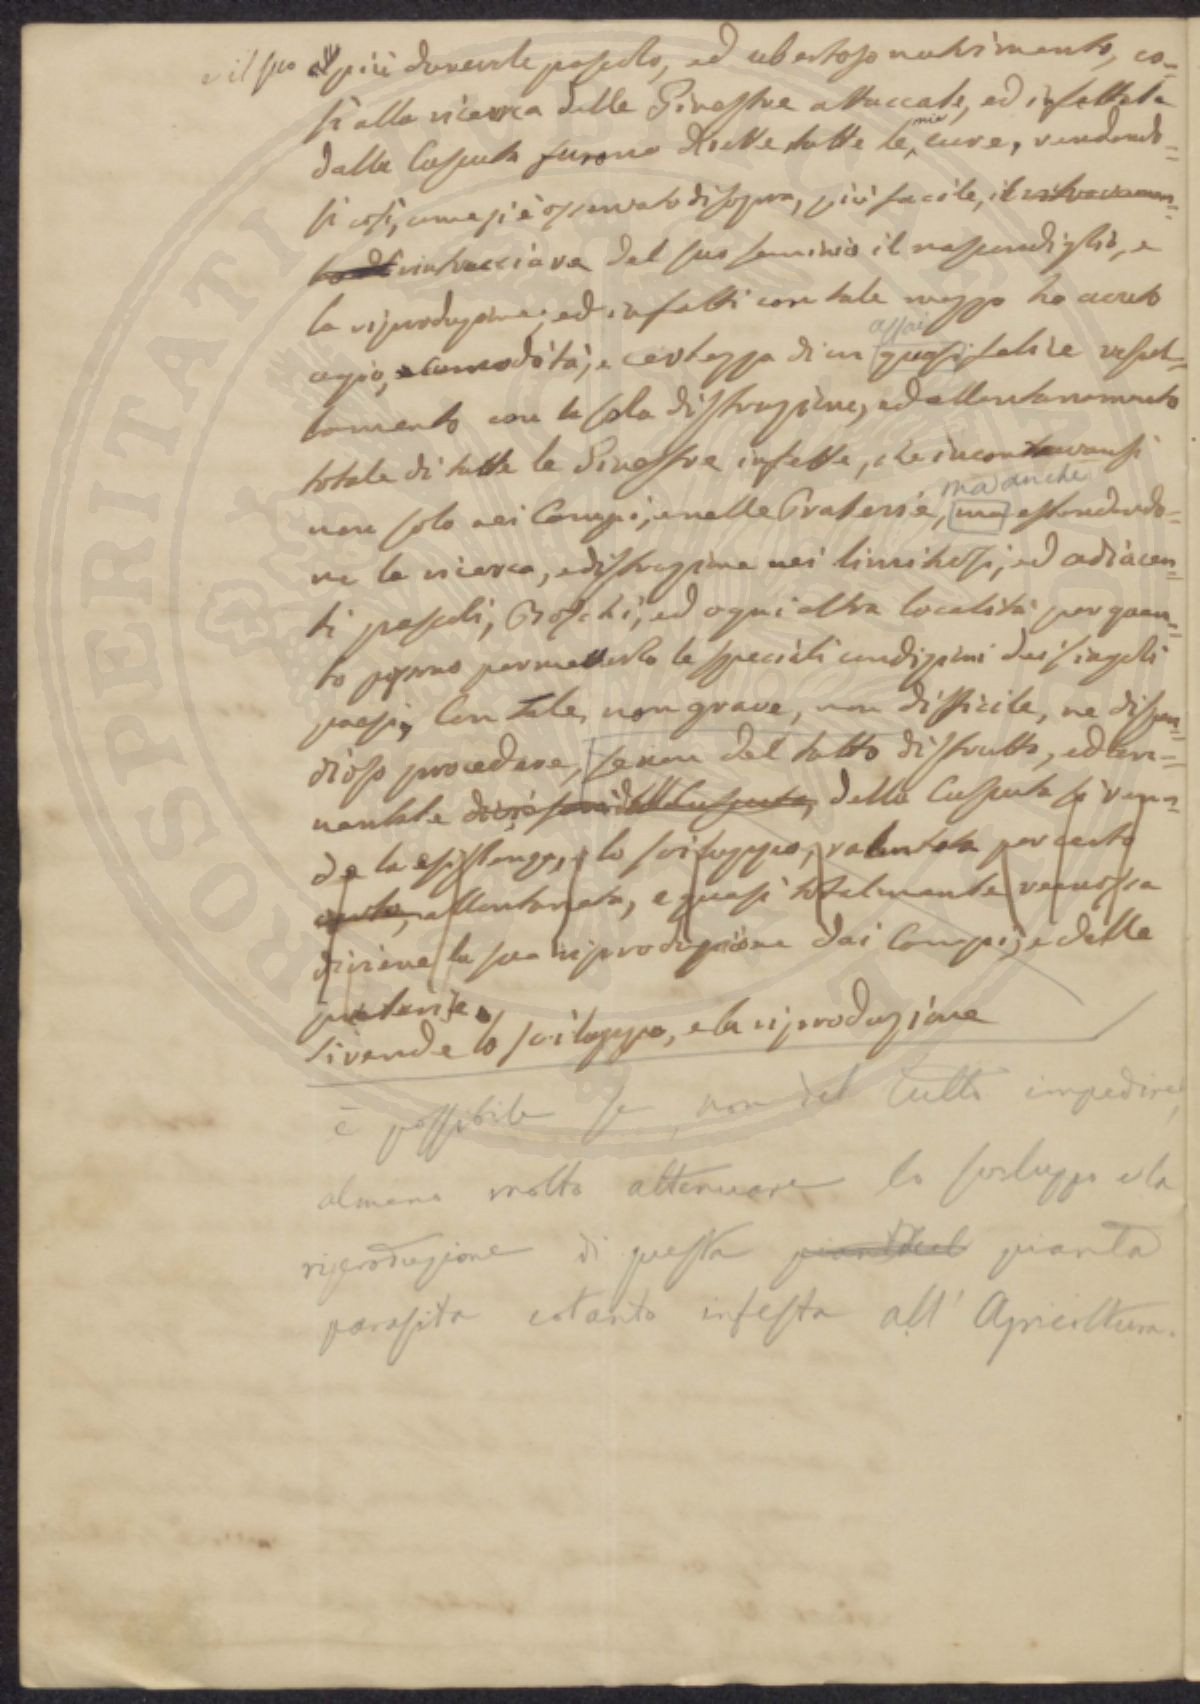 e il suo più durevole pascolo, ed ubertoso nutrimento, co=
sì alla ricerca delle Ginestre attaccate, ed infettate
dalla Cuscuta furono dirette tutte le mie cure, rendendo=
si così, come si è osservato di sopra, più facile, il ritrovamen=
to del rintracciare del suo seminio il nascondiglio, e
la riproduzione; ed infatti con tale mezzo ho avuto
agio, e comodità, e certezza di un quasi assai felice risul=
tamento con la sola distruzione, ed allontanamento
totale di tutte le Ginestre infette, che incontravansi
non solo nei Campi, e nelle Praterie, ma ma anche estendendo=
ne la ricerca, e distruzione nei limitrofi, ed adiacen=
ti pascoli, Boschi, ed ogni altra località per quan=
to possono permetterlo le speciali condizioni dei singoli
paesi, Con tale, non grave, non difficile, ne dispen=
dioso procedere, se non del tutto distrutto, ed
della Cuscuta si ren=
de la esistenza, e lo sviluppo, per certo
certo, allontanata, e quasi totalmente
diviene la sua riproduzione dai Campi, e delle
praterie.
si rende lo sviluppo, e la riproduzione
è possibile se, non del tutto impedire,
almeno molto attenuare lo sviluppo e la
riproduzione di questa pianta
parasita cotanto infesta all' Agricoltura.
PUBLICAE
PROSPERITATI